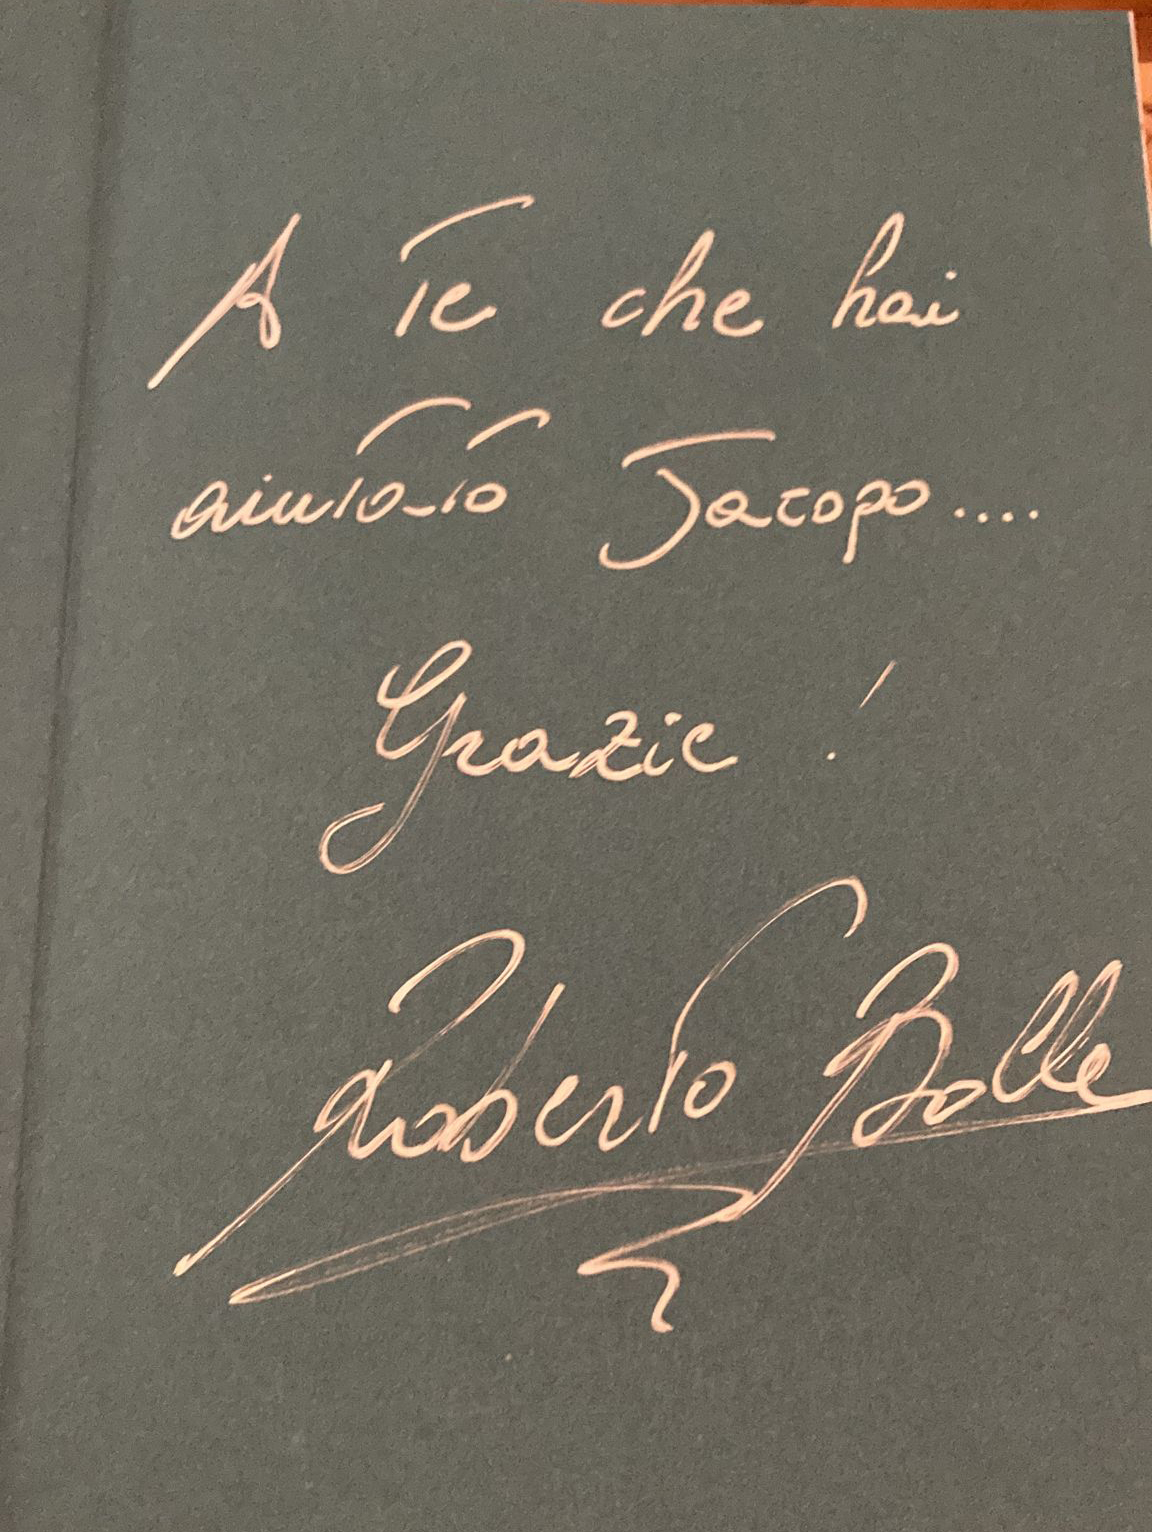 A Te che hai
aiutato Jacopo....
Grazie !
Roberto Bolle